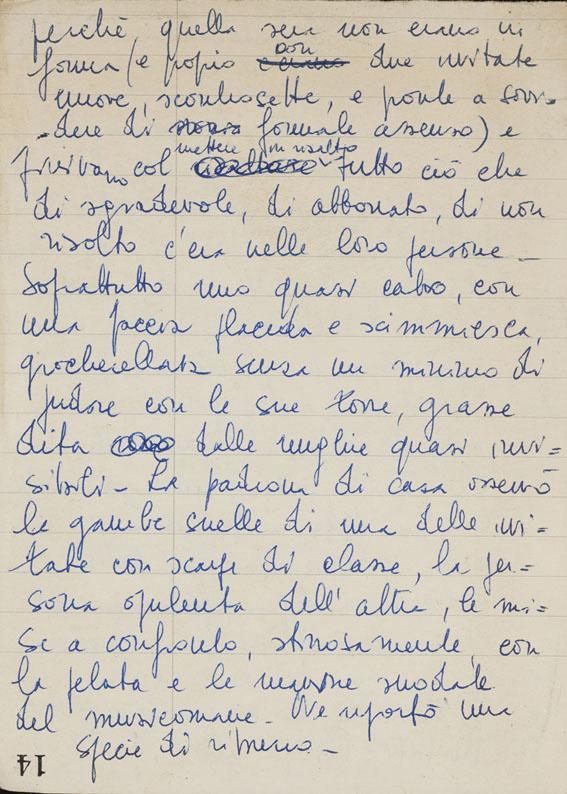 perché, quella sera non erano in
forma (e proprio con due invitate
nuove, sconosciute, e pronte a sorri-
dere di formale assenso) e
finivano col mettere in risalto tutto ciò che
di sgradevole, di abbonato, di non
risolto c'era nelle loro persone -
Soprattutto uno quasi calvo, con
una faccia flaccida e scimmiesca,
giocherellava senza un minimo di
pudore con le sue tozze, grasse
dita dalle unghie quasi invi=
sibili - La padrona di casa osservò
le gambe snelle di una delle invi=
tate con scarpe di classe, la per=
sona opulenta dell'altra, le mi=
se a confronto, astiosamente, con
la pelata e le manone snodate
del musicomane - Ne riportò una
specie di rimorso -
14